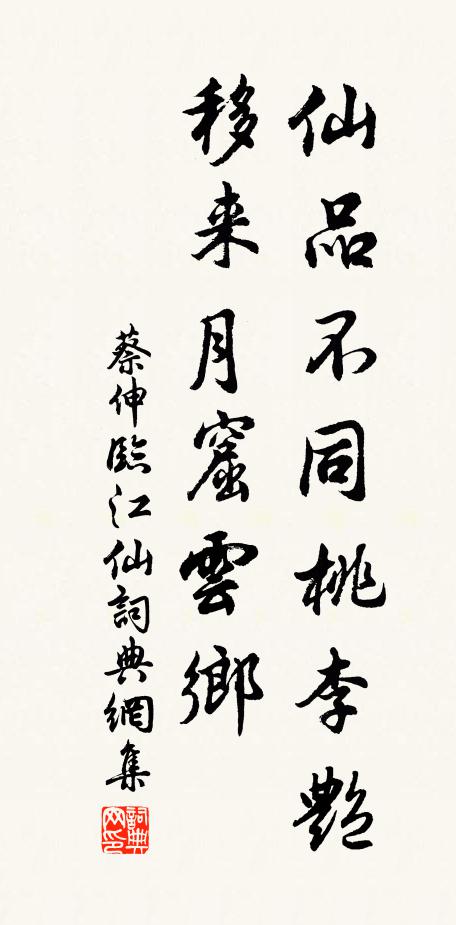 仙品不同桃李艷
移来月窟雲鄉
蔡伸臨江仙詞典網集
詞典網印